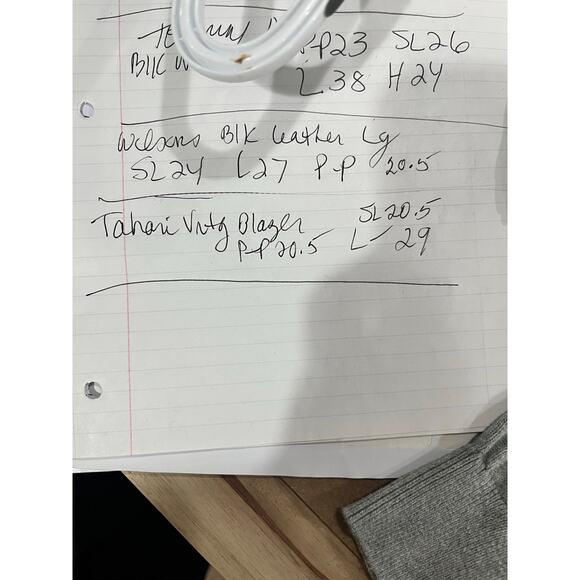 P-P23 SL26
Blk
L 38 H 24
Wilsons Blk Leather Lg
SL 24 L 27 P-P 20.5
Tahari Vntg Blazer SL 20.5
P-P 20.5 L- 29